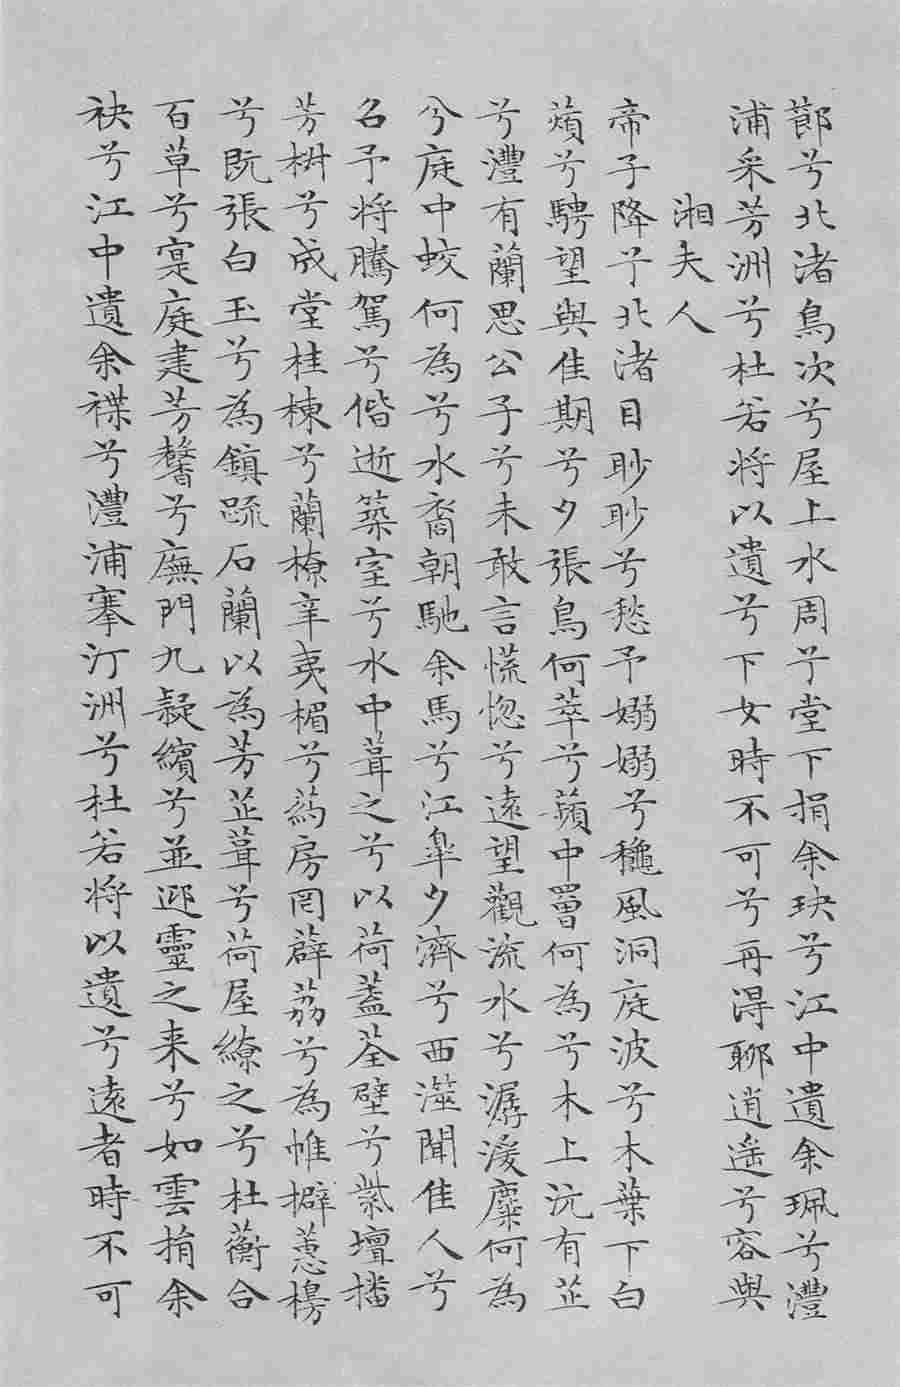 節兮北渚鳥次兮屋上水周兮堂下捐余玦兮江中遺余珮兮澧
浦采芳洲兮杜若將以遺兮下女時不可兮再得聊逍遥兮容與
湘夫人
帝子降兮北渚目眇眇兮愁予嫋嫋兮穐風洞庭波兮木葉下白
薠兮騁望與佳期兮夕張鳥何萃兮蘋中罾何為兮木上沅有芷
兮澧有蘭思公子兮未敢言慌惚兮遠望觀流水兮潺湲麋何為
兮庭中蛟何為兮水裔朝馳余馬兮江皐夕濟兮西澨聞佳人兮
召予將騰駕兮偕逝築室兮水中葺之兮以荷蓋荃壁兮紫壇播
芳椒兮成堂桂棟兮蘭橑辛夷楣兮葯房罔薜荔兮為帷擗蕙櫋
兮既張白玉兮為鎮疏石蘭以為芳芷葺兮荷屋繚之兮杜蘅合
百草兮寔庭建芳馨兮廡門九疑繽兮並迎靈之来兮如雲捐余
袂兮江中遺余褋兮澧浦搴汀洲兮杜若將以遺兮遠者時不可